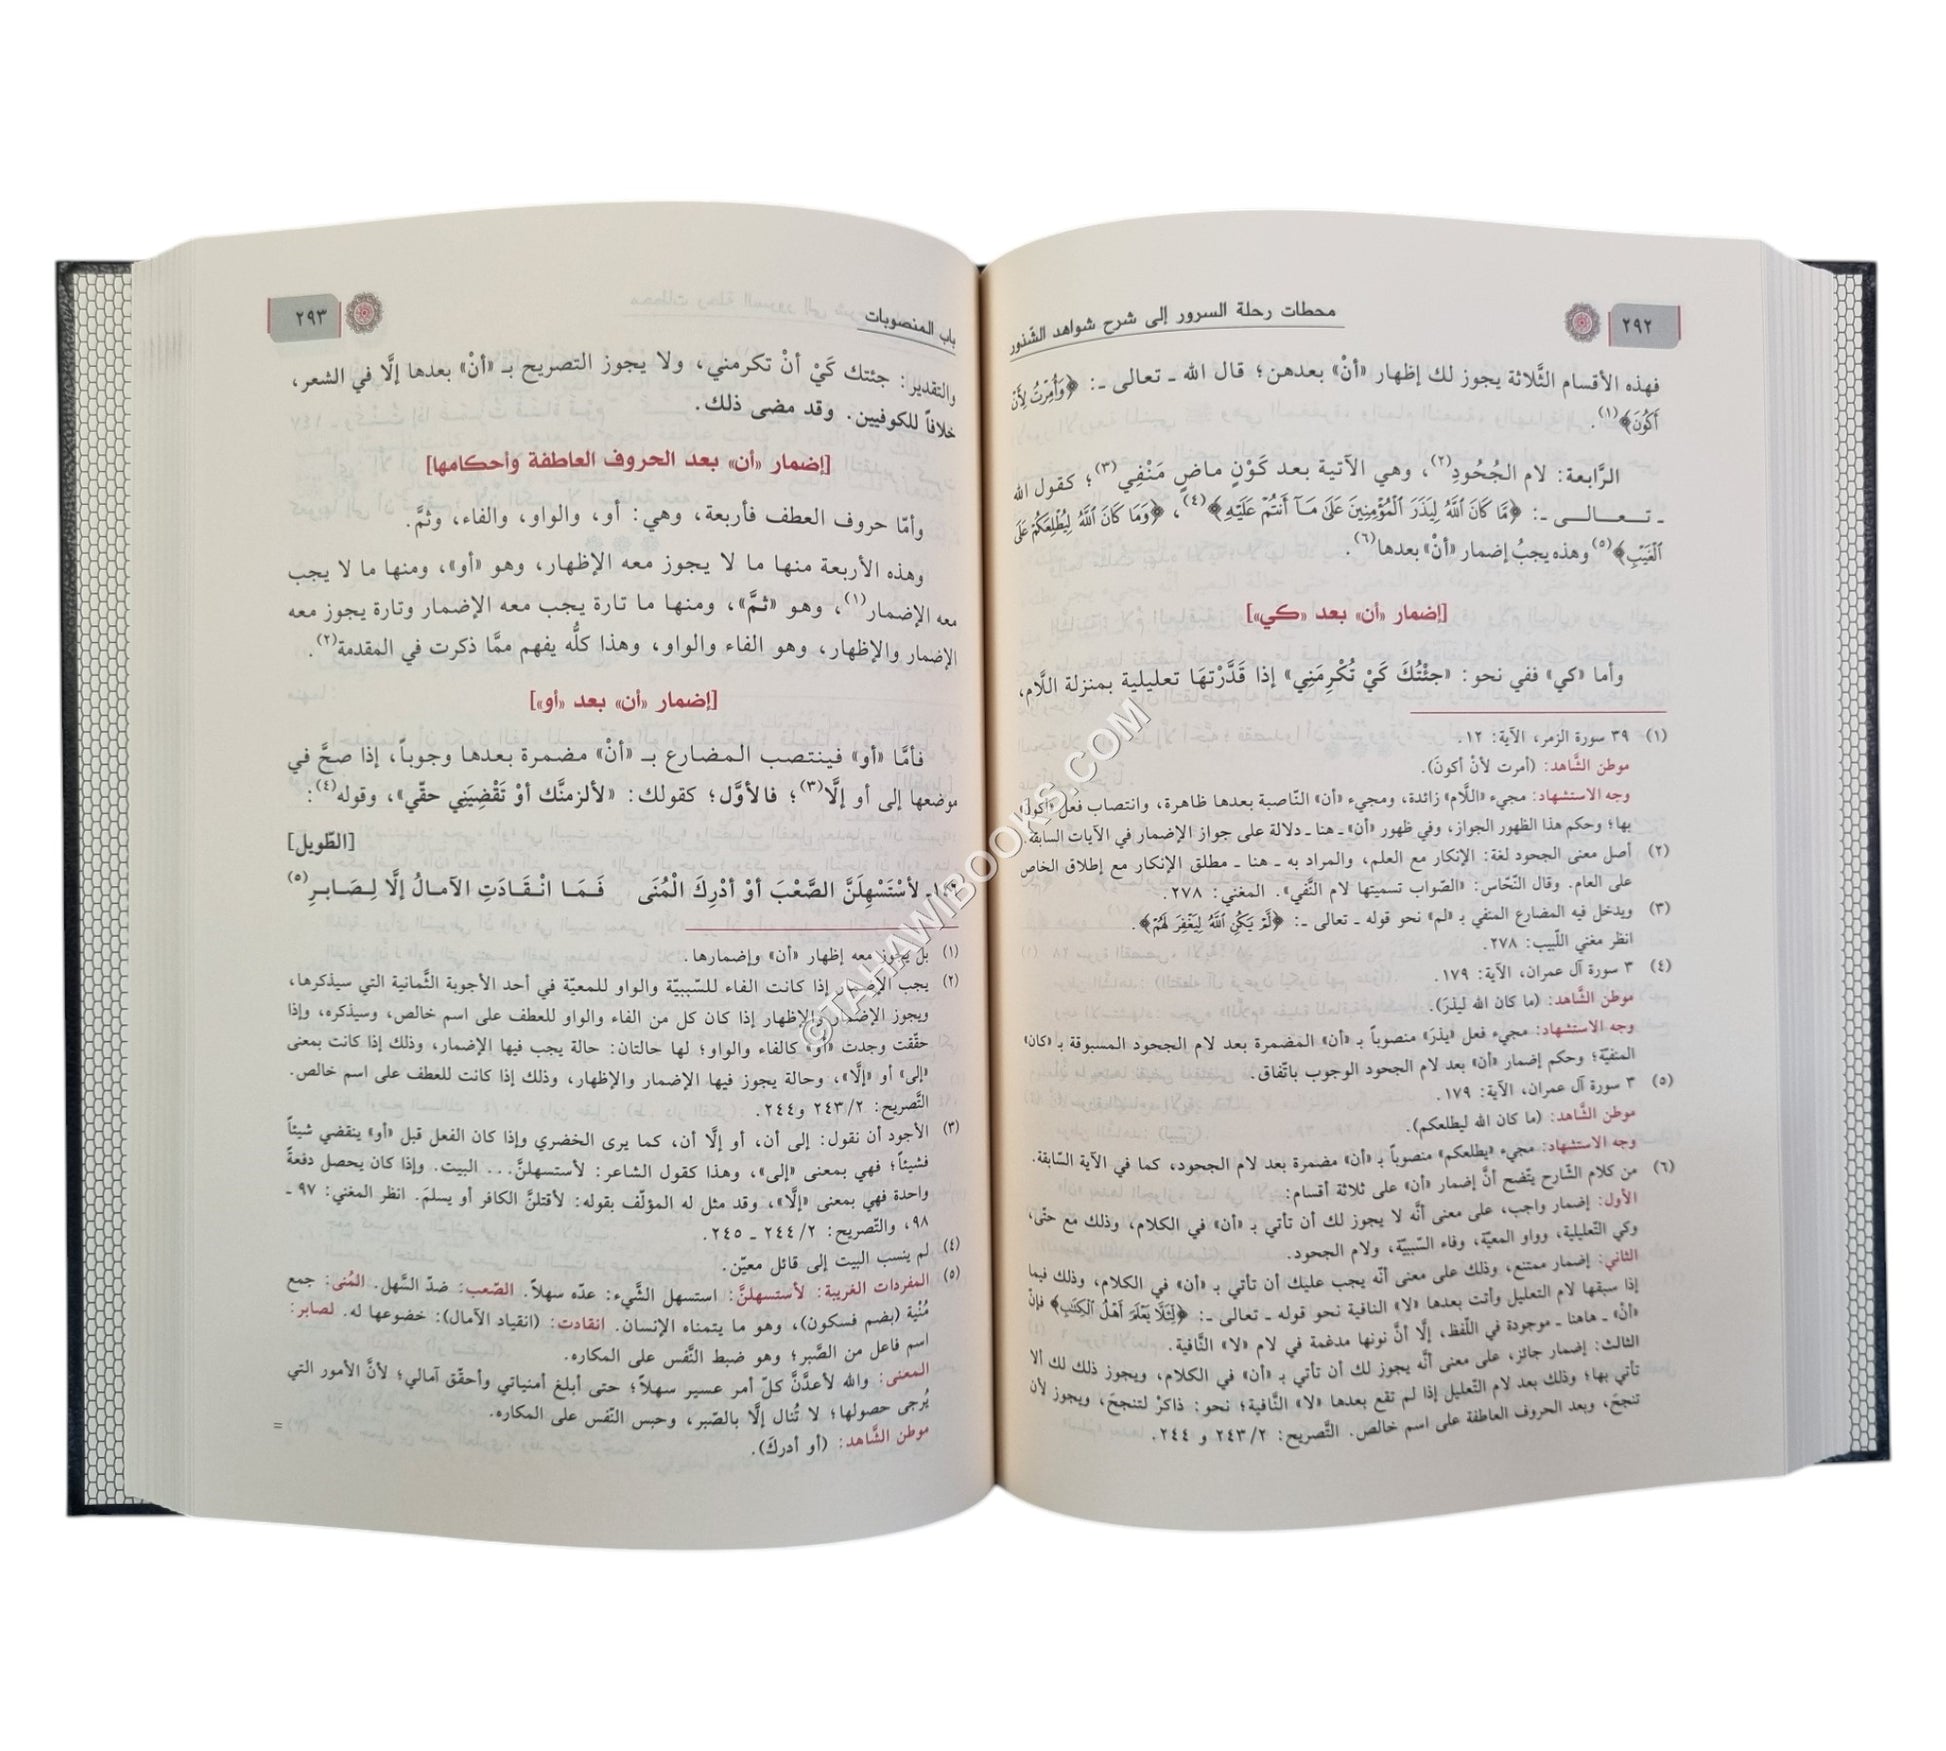 ٢٩٢
محطات رحلة السرور إلى شرح شواهد الشذور
فهذه الأقسام الثَّلاثة يجوز لك إظهار «أنْ» بعدهن؛ قال الله ـ تعالى ـ: ﴿وَأُمِرْتُ لِأَنْ
أَكُونَ﴾(١).
الرَّابعة: لام الجُحُودِ(٢)، وهي الآتية بعد كَوْنٍ ماضٍ مَنْفِي(٣)؛ كقول الله
ـ تـعـالـى ـ: ﴿مَّا كَانَ ٱللَّهُ لِيَذَرَ ٱلْمُؤْمِنِينَ عَلَىٰ مَآ أَنتُمْ عَلَيْهِ﴾(٤)، ﴿وَمَا كَانَ ٱللَّهُ لِيُطْلِعَكُمْ عَلَى
ٱلْغَيْبِ﴾(٥) وهذه يجبُ إضمار «أنْ» بعدها(٦).
[إضمار «أن» بعد «كي»]
وأما «كي» ففي نحو: «جئْتُكَ كَيْ تُكْرِمَنِي» إذا قَدَّرْتهَا تعليلية بمنزلة اللَّام،
(١) ٣٩ سورة الزمر، الآية: ١٢.
موطن الشَّاهد: (أمرت لأنْ أكونَ).
وجه الاستشهاد: مجيء «اللَّام» زائدة، ومجيء «أن» النّاصبة بعدها ظاهرة، وانتصاب فعل «أكون»
بها؛ وحكم هذا الظهور الجواز، وفي ظهور «أن» ـ هنا ـ دلالة على جواز الإضمار في الآيات السابقة.
(٢) أصل معنى الجحود لغة: الإنكار مع العلم، والمراد به ـ هنا ـ مطلق الإنكار مع إطلاق الخاص
على العام. وقال النّحّاس: «الصّواب تسميتها لام النَّفي». المغني: ٢٧٨.
(٣) ويدخل فيه المضارع المنفي بـ «لم» نحو قوله ـ تعالى ـ: ﴿لَّمْ يَكُنِ ٱللَّهُ لِيَغْفِرَ لَهُمْ﴾.
انظر مغني اللّبيب: ٢٧٨.
(٤) ٣ سورة آل عمران، الآية: ١٧٩.
موطن الشَّاهد: (ما كان الله ليذرَ).
وجه الاستشهاد: مجيء فعل «يذرَ» منصوباً بـ «أن» المضمرة بعد لام الجحود المسبوقة بـ «كان»
المنفيّة؛ وحكم إضمار «أن» بعد لام الجحود الوجوب باتّفاق.
(٥) ٣ سورة آل عمران، الآية: ١٧٩.
موطن الشَّاهد: (ما كان الله ليطلعكم).
وجه الاستشهاد: مجيء «يطلعكم» منصوباً بـ «أن» مضمرة بعد لام الجحود، كما في الآية السّابقة.
(٦) من كلام الشّارح يتّضح أنَّ إضمار «أن» على ثلاثة أقسام:
الأول: إضمار واجب، على معنى أنَّه لا يجوز لك أن تأتي بـ «أن» في الكلام، وذلك مع حتَّى،
وكي التّعليلية، وواو المعيّة، وفاء السّببيّة، ولام الجحود.
الثاني: إضمار ممتنع، وذلك على معنى أنّه يجب عليك أن تأتي بـ «أن» في الكلام، وذلك فيما
إذا سبقها لام التعليل وأتت بعدها «لا» النافية نحو قوله ـ تعالى ـ: ﴿لِئَلَّا يَعْلَمَ أَهْلُ ٱلْكِتَٰبِ﴾ فإنْ
«أن» ـ هاهنا ـ موجودة في اللّفظ، إلَّا أنَّ نونها مدغمة في لام «لا» النَّافية.
الثالث: إضمار جائز، على معنى أنَّه يجوز لك أن تأتي بـ «أن» في الكلام، ويجوز ذلك لك ألا
تأتي بها؛ وذلك بعد لام التّعليل إذا لم تقع بعدها «لا» النَّافية؛ نحو: ذاكرْ لتنجحَ، ويجوز لأن
تنجحَ، وبعد الحروف العاطفة على اسم خالص. التَّصريح: ٢/ ٢٤٣ و ٢٤٤.
باب المنصوبات
٢٩٣
والتقدير: جئتك كَيْ أنْ تكرمني، ولا يجوز التصريح بـ «أنْ» بعدها إلَّا في الشعر،
خلافاً للكوفيين. وقد مضى ذلك.
[إضمار «أن» بعد الحروف العاطفة وأحكامها]
وأمّا حروف العطف فأربعة، وهي: أو، والواو، والفاء، وثمَّ.
وهذه الأربعة منها ما لا يجوز معه الإظهار، وهو «أو»، ومنها ما لا يجب
معه الإضمار(١)، وهو «ثمَّ»، ومنها ما تارة يجب معه الإضمار وتارة يجوز معه
الإضمار والإظهار، وهو الفاء والواو، وهذا كلُّه يفهم ممَّا ذكرت في المقدمة(٢).
[إضمار «أن» بعد «أو»]
فأمَّا «أو» فينتصب المضارع بـ «أنْ» مضمرة بعدها وجوباً، إذا صحَّ في
موضعها إلى أو إلَّا(٣)؛ فالأوَّل؛ كقولك: «لألزمنَّك أوْ تَقْضِيَنِي حقّي»، وقوله(٤):
[الطّويل]
ـ لأسْتَسْهِلَنَّ الصَّعْبَ أوْ أدْرِكَ الْمُنَى   فَـمَـا انْـقَـادَتِ الآمالُ إلَّا لِـصَـابـرِ(٥)
(١) بل يجوز معه إظهار «أن» وإضمارها.
(٢) يجب الإضمار إذا كانت الفاء للسّببيّة والواو للمعيّة في أحد الأجوبة الثَّمانية التي سيذكرها،
ويجوز الإضمار والإظهار إذا كان كل من الفاء والواو للعطف على اسم خالص، وسيذكره، وإذا
حقّقت وجدت «أو» كالفاء والواو؛ لها حالتان: حالة يجب فيها الإضمار، وذلك إذا كانت بمعنى
«إلى» أو «إلَّا»، وحالة يجوز فيها الإضمار والإظهار، وذلك إذا كانت للعطف على اسم خالص.
التَّصريح: ٢/ ٢٤٣ و٢٤٤.
(٣) الأجود أن نقول: إلى أن، أو إلَّا أن، كما يرى الخضري وإذا كان الفعل قبل «أو» ينقضي شيئاً
فشيئاً؛ فهي بمعنى «إلى»، وهذا كقول الشاعر: لأستسهلنَّ... البيت. وإذا كان يحصل دفعةً
واحدة فهي بمعنى «إلَّا»، وقد مثل له المؤلّف بقوله: لأقتلنَّ الكافر أو يسلمَ. انظر المغني: ٩٧ ـ
٩٨، والتّصريح: ٢/ ٢٤٤ ـ ٢٤٥.
(٤) لم ينسب البيت إلى قائل معيّن.
(٥) المفردات الغريبة: لأستسهلنَّ: استسهل الشَّيء: عدّه سهلاً. الصّعب: ضدّ السَّهل. المُنى: جمع
مُنْية (بضم فسكون)، وهو ما يتمناه الإنسان. انقادت: (انقياد الآمال): خضوعها له. لصابر:
اسم فاعل من الصَّبر؛ وهو ضبط النَّفس على المكاره.
المعنى: والله لأعدَّنَّ كلّ أمر عسير سهلاً؛ حتى أبلغ أمنياتي وأحقّق آمالي؛ لأنَّ الأمور التي
يُرجى حصولها؛ لا تُنال إلَّا بالصّبر، وحبس النّفس على المكاره.
موطن الشَّاهد: (أو أدركَ).
=
©TAHAWIBOOKS.COM